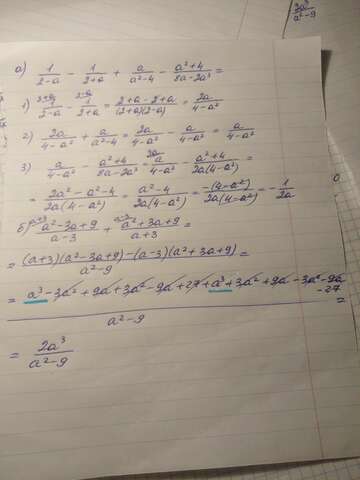 2a³/(a²-9)
а) 1/(2-a) - 1/(2+a) + a/(a²-4) - (a²+4)/(8a-2a³) =
1) 1/(2-a) - 1/(2+a) = (2+a-2+a)/((2+a)(2-a)) = 2a/(4-a²)
2) 2a/(4-a²) + a/(a²-4) = 2a/(4-a²) - a/(4-a²) = a/(4-a²)
3) a/(4-a²) - (a²+4)/(8a-2a³) = a/(4-a²) - (a²+4)/(2a(4-a²)) =
= (2a²-a²-4)/(2a(4-a²)) = (a²-4)/(2a(4-a²)) = -(4-a²)/(2a(4-a²)) = -1/2a
б) (a²-3a+9)/(a-3) + (a²+3a+9)/(a+3) =
= ((a+3)(a²-3a+9)-(a-3)(a²+3a+9))/(a²-9) =
= (a³-3a²+9a+3a²-9a+27+a³+3a²+9a-3a²-9a-27)/(a²-9) =
= 2a³/(a²-9)